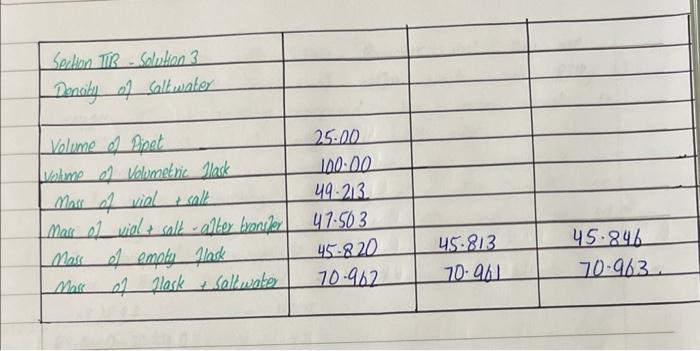 Section IIB - Solution 3
Density of Saltwater
Volume of Pipet 25.00
Volume of Volumetric flask 100.00
Mass of vial + salt 49.213
Mass of vial + salt - after transfer 47.503
Mass of empty flask 45.820 45.813 45.846
Mass of flask + Saltwater 70.962 70.961 70.963.